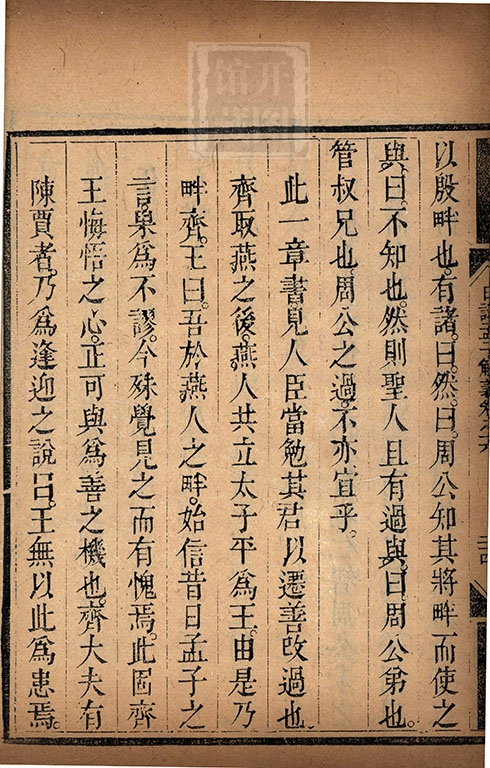 以殷畔也有諸曰然曰周公知其將畔而使之
與曰不知也然則聖人且有過與曰周公弟也
管叔兄也周公之過不亦宜乎
此一章書見人臣當勉其君以遷善改過也
齊取燕之後燕人共立太子平爲王由是乃
畔齊王曰吾於燕人之畔始信昔日孟子之
言果爲不謬今殊覺見之而有愧焉此固齊
王悔悟之心正可與爲善之機也齊大夫有
陳賈者乃爲逢迎之說曰王無以此爲患焉